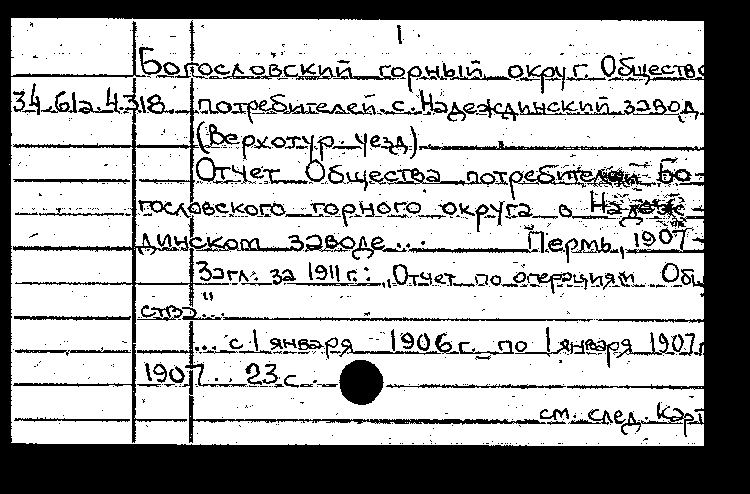 1
Богословский горный округ. Общество
34.61а.4.318. потребителей. с. Надеждинский завод
(Верхотур. уезд)
Отчет Общества потребителей Бо-
гословского горного округа в Надеж-
динском заводе... Пермь, 1907-
Загл. за 1911 г.: „Отчет по операциям Общ
ства"...
... с 1 января 1906 г. по 1 января 1907 г
1907. 23 с.
см. след. карт